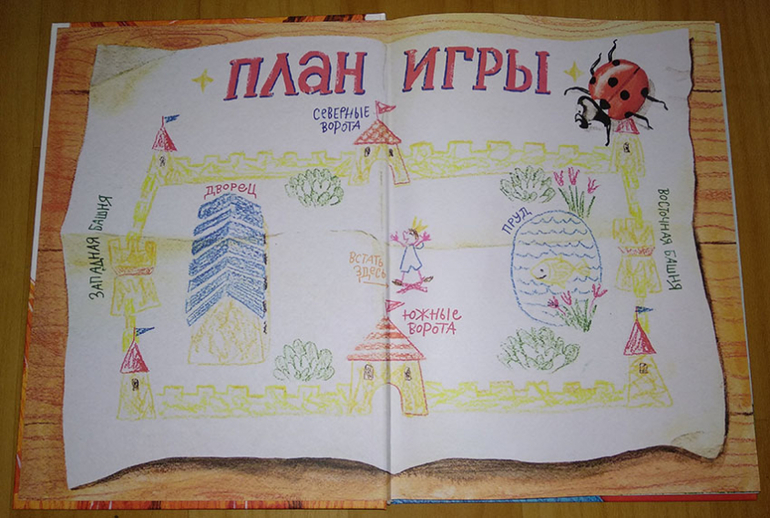 ПЛАН ИГРЫ
СЕВЕРНЫЕ
ВОРОТА
ДВОРЕЦ
ЗАПАДНАЯ БАШНЯ
ВСТАТЬ
ЗДЕСЬ
ПРУД
ВОСТОЧНАЯ БАШНЯ
ЮЖНЫЕ
ВОРОТА